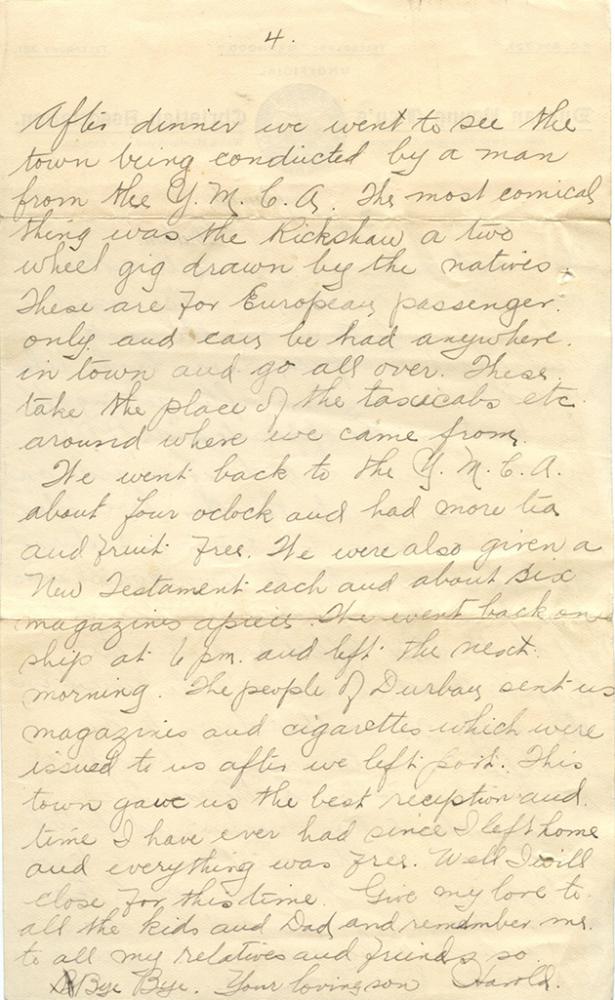 4.
After dinner we went to see the
town being conducted by a man
from the Y.M.C.A. The most comical
thing was the Rickshaw a two
wheel gig drawn by the natives.
These are for European passenger
only and can be had anywhere.
in town and go all over. These
take the place of the taxicabs etc.
around where we came from.
We went back to the Y.M.C.A.
about four oclock and had more tea
and fruit free. We were also given a
New Testament each and about six
magazines apiece. We went back on
ship at 6 pm. and left the next
morning. The people of Durban sent us
magazines and cigarettes which were
issued to us after we left port. This
town gave us the best reception and
time I have ever had since I left home
and everything was free. Well I will
close for this time. Give my love to
all the kids and Dad, and remember me.
to all my relatives and friends so
Bye Bye. Your loving son Harold.